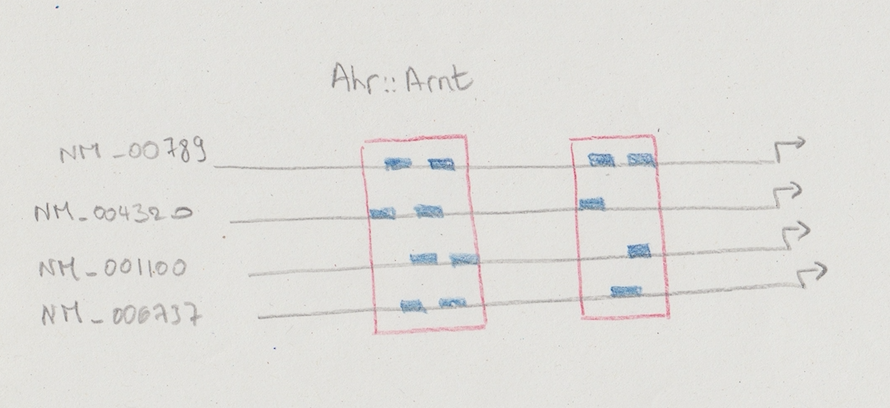 Ahr::Arnt
NM_00789
NM_004320
NM_001100
NM_006737